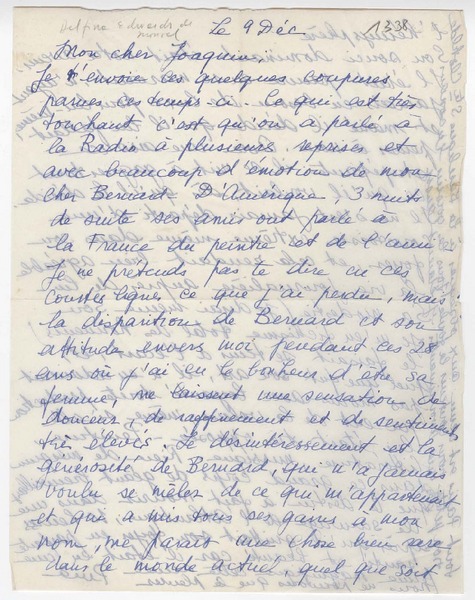 Delfina Edwards de
Le 9 Déc
1338
Mon cher Joaquin,
Je t'envoie ces quelques coupures
parues ces temps-ci. Ce qui est très
touchant c'est qu'on a parlé à
la Radio à plusieurs reprises et
avec beaucoup d'émotion de mon
cher Bernard. D'Amérique, 3 nuits
de suite ses amis ont parlé à
la France du peintre et de l'ami
Je ne prétends pas te dire en ces
courtes lignes ce que j'ai perdu, mais
la disparition de Bernard et son
attitude envers moi pendant ces 28
ans où j'ai eu le bonheur d'être sa
femme, me laissent une sensation de
douceur, de raffinement et de sentiments
très élevés. Le désintéressement et la
générosité de Bernard, qui n'a jamais
voulu se mêler de ce qui m'appartenait
et qui a mis tous ses gains à mon
nom, me paraît une chose bien rare
dans le monde actuel, quel que soit